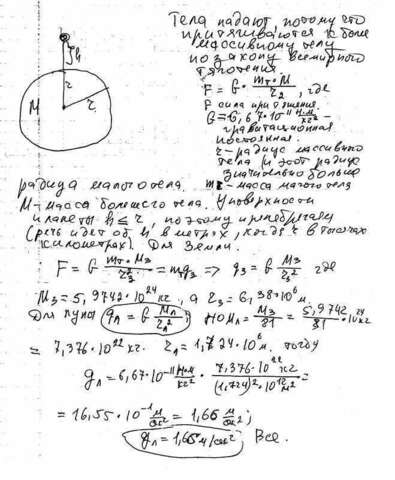 Тела падают потому что
притягиваются к боле
массивному телу
по закону всемирного
тяготения.
h
F = G · mт·M / r², где
F сила притяжения.
G = 6,67·10⁻¹¹ н·м/кг² –
гравитационная
постоянная.
M
r
r
r – радиус массивного
тела (и этот радиус
значительно больше
радиуса малого тела. mт – масса малого тела
M – масса большего тела. У поверхности
планеты h ≤ r, поэтому h пренебрегаем
(речь идет об h в метрах, когда r в тысячах
километрах). Для Земли.
F = G mт·Mз / rз² = mgз => gз = G Mз / rз² где
Mз = 5,9742·10²⁴ кг, а rз = 6,38·10⁶ м.
Для луны gл = G Mл / rл² но Mл = Mз / 81 = 5,9742 / 81 · 10²⁴ кг
= 7,376·10²² кг. rл = 1,724·10⁶ м. тогда
gл = 6,67·10⁻¹¹ н·м/кг² · 7,376·10²² кг / (1,724)²·10¹² м² =
= 16,55·10⁻¹ м/сек² = 1,66 м/сек²;
gл = 1,65 м/сек² ; Все.